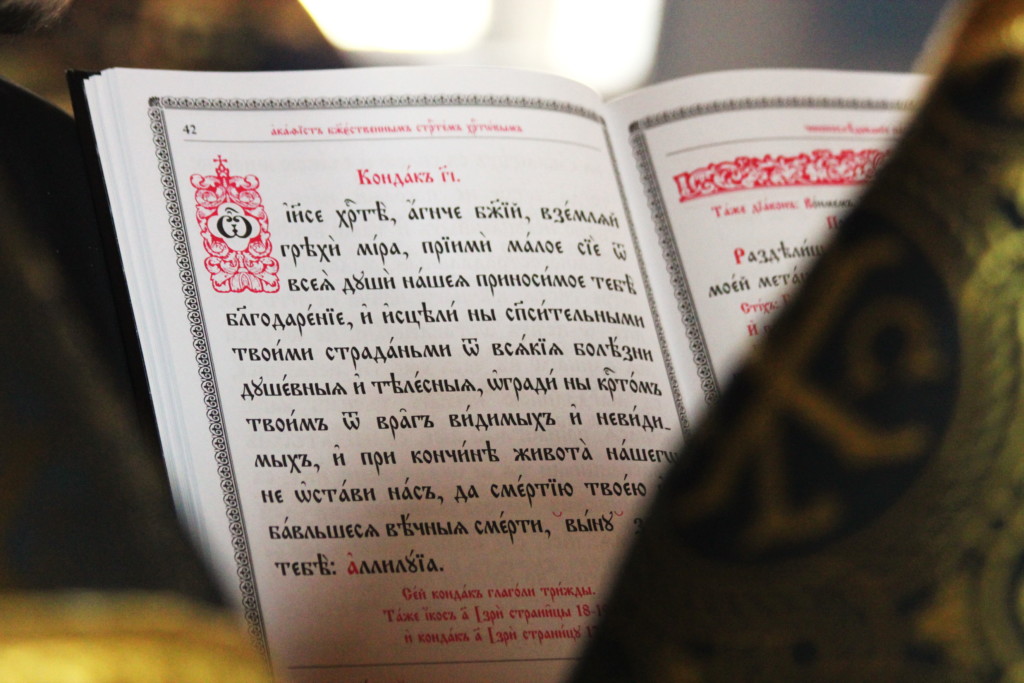 42 а҆ка́ѳїстъ бж҃е́ственнымъ стрⷭ҇те́мъ хрⷭ҇то́вымъ
Конда́къ г҃і.
Ѽ і҆и҃се хрⷭ҇тѐ, а҆́гнче бж҃їй, взе́мляй
грѣхѝ мі́ра, прїимѝ ма́лое сїѐ ѿ
всеѧ̀ дꙋшѝ на́шеѧ приноси́мое тебѣ̀
бл҃годаре́нїе, и҆ и҆сцѣлѝ ны сп҃си́тельными
твои́ми страда́ньми ѿ всѧ́кїѧ болѣ́зни
дꙋше́вныѧ и҆ тѣле́сныѧ, ѡ҆градѝ ны крⷭ҇то́мъ
твои́мъ ѿ вра̑гъ ви́димыхъ и҆ неви́ди_
мыхъ, и҆ при кончи́нѣ живота̀ на́шегѡ
не ѡ҆ста́ви на́съ, да сме́ртїю твое́ю
ба́вльшесѧ вѣ́чныѧ сме́рти, вы́нꙋ
тебѣ̀: а҆ллилꙋ́їа.
Се́й конда́къ глаго́ли три́жды.
Та́же і҆́косъ а҃ [зрѝ страни̑цы 18-
и҆ конда́къ а҃ [зрѝ страни́цꙋ
Та́же дїа́конъ: Во́нмемъ
Раздѣли́
мое́й мета́
Сті́хъ: